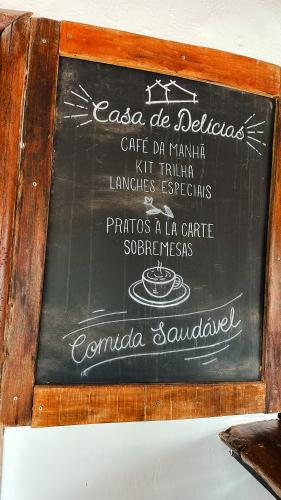 Casa de Delícias
CAFÉ DA MANHÃ
KIT TRILHA
LANCHES ESPECIAIS
PRATOS À LA CARTE
SOBREMESAS
Comida Saudável